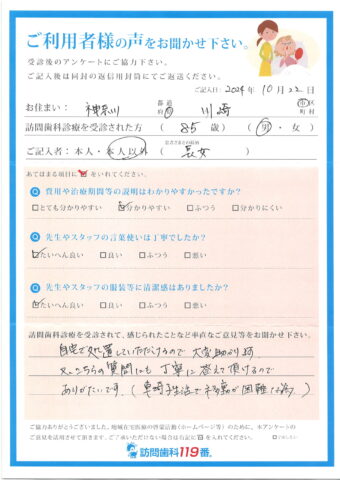 ご利用者様の声をお聞かせ下さい。
受診後のアンケートにご協力下さい。
ご記入後は同封の返信用封筒にてご返送ください。
ご記入日: 2024年 10月 22日
お住まい: 神奈川 都道府県 川崎 市区町村
訪問歯科診療を受診された方 ( 85 歳) ( 男 ・ 女 )
ご記入者: 本人・本人以外 ( 長女 )
あてはまる項目に を いれてください。
Q 費用や治療期間等の説明はわかりやすかったですか?
□とても分かりやすい ☑分かりやすい □ふつう □分かりにくい
Q 先生やスタッフの言葉使いは丁寧でしたか?
☑たいへん良い □良い □ふつう □悪い
Q 先生やスタッフの服装等に清潔感はありましたか?
☑たいへん良い □良い □ふつう □悪い
訪問歯科診療を受診されて、感じられたことなど率直なご意見等をお聞かせ下さい。
自宅で処置していただけるので 大変助かります
又こちらの質問にも 丁寧に答えて頂けるので
ありがたいです。(車椅子生活で 困難な為)
ご協力ありがとうございました。地域在宅医療の啓蒙活動(ホームページ等)のために、本アンケートの
ご意見を活用させて頂きます。ご了承いただけない場合は右記に を入れて下さい。
訪問歯科119番。